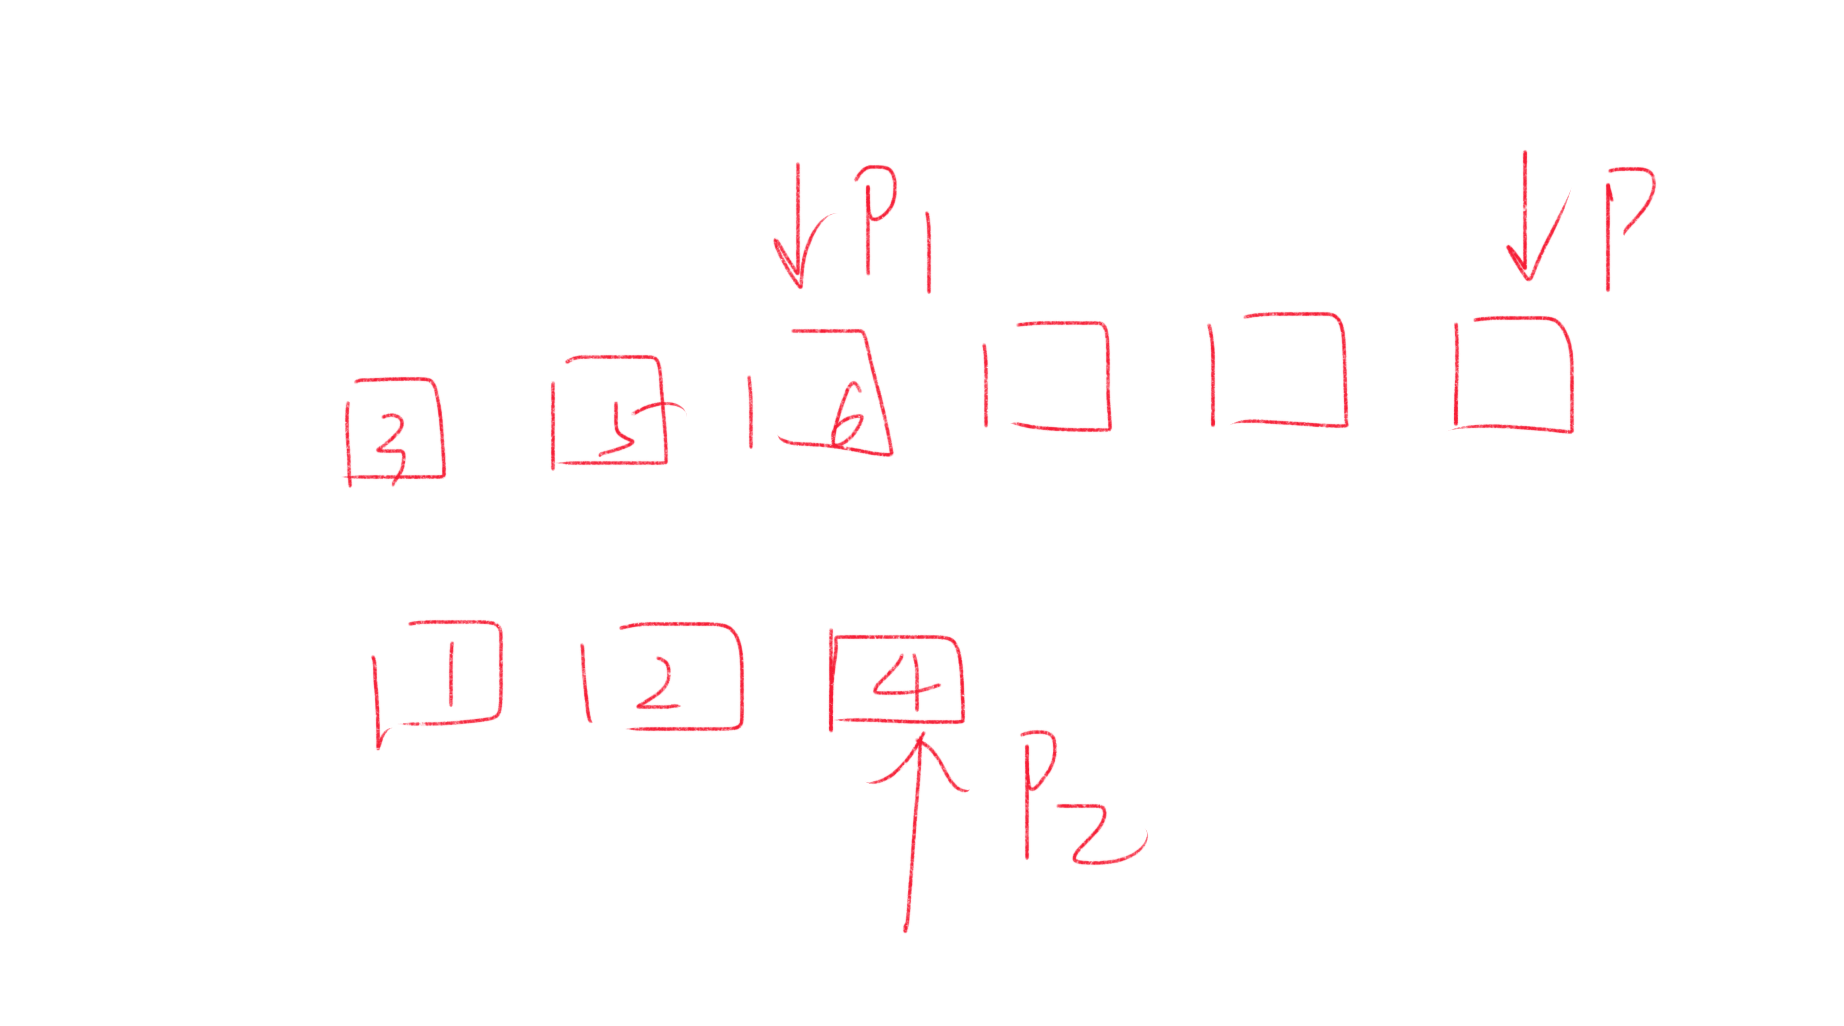 P1 P
3 5 6
1 2 4
P2